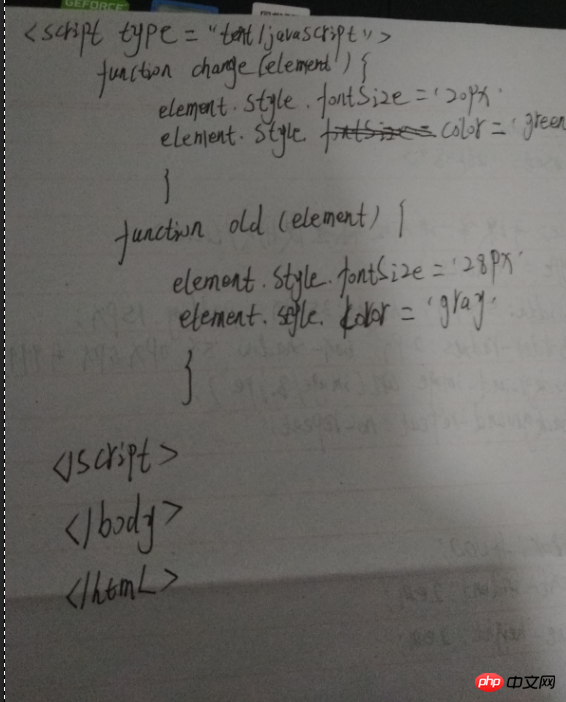 GEFORCE
<script type="text/javascript">
function change(element){
element.style.fontSize='20px'
element.style.color='green
}
function old (element) {
element.style.fontSize='28px'
element.style.color='gray'
}
</script>
</body>
</html>
php 中文网